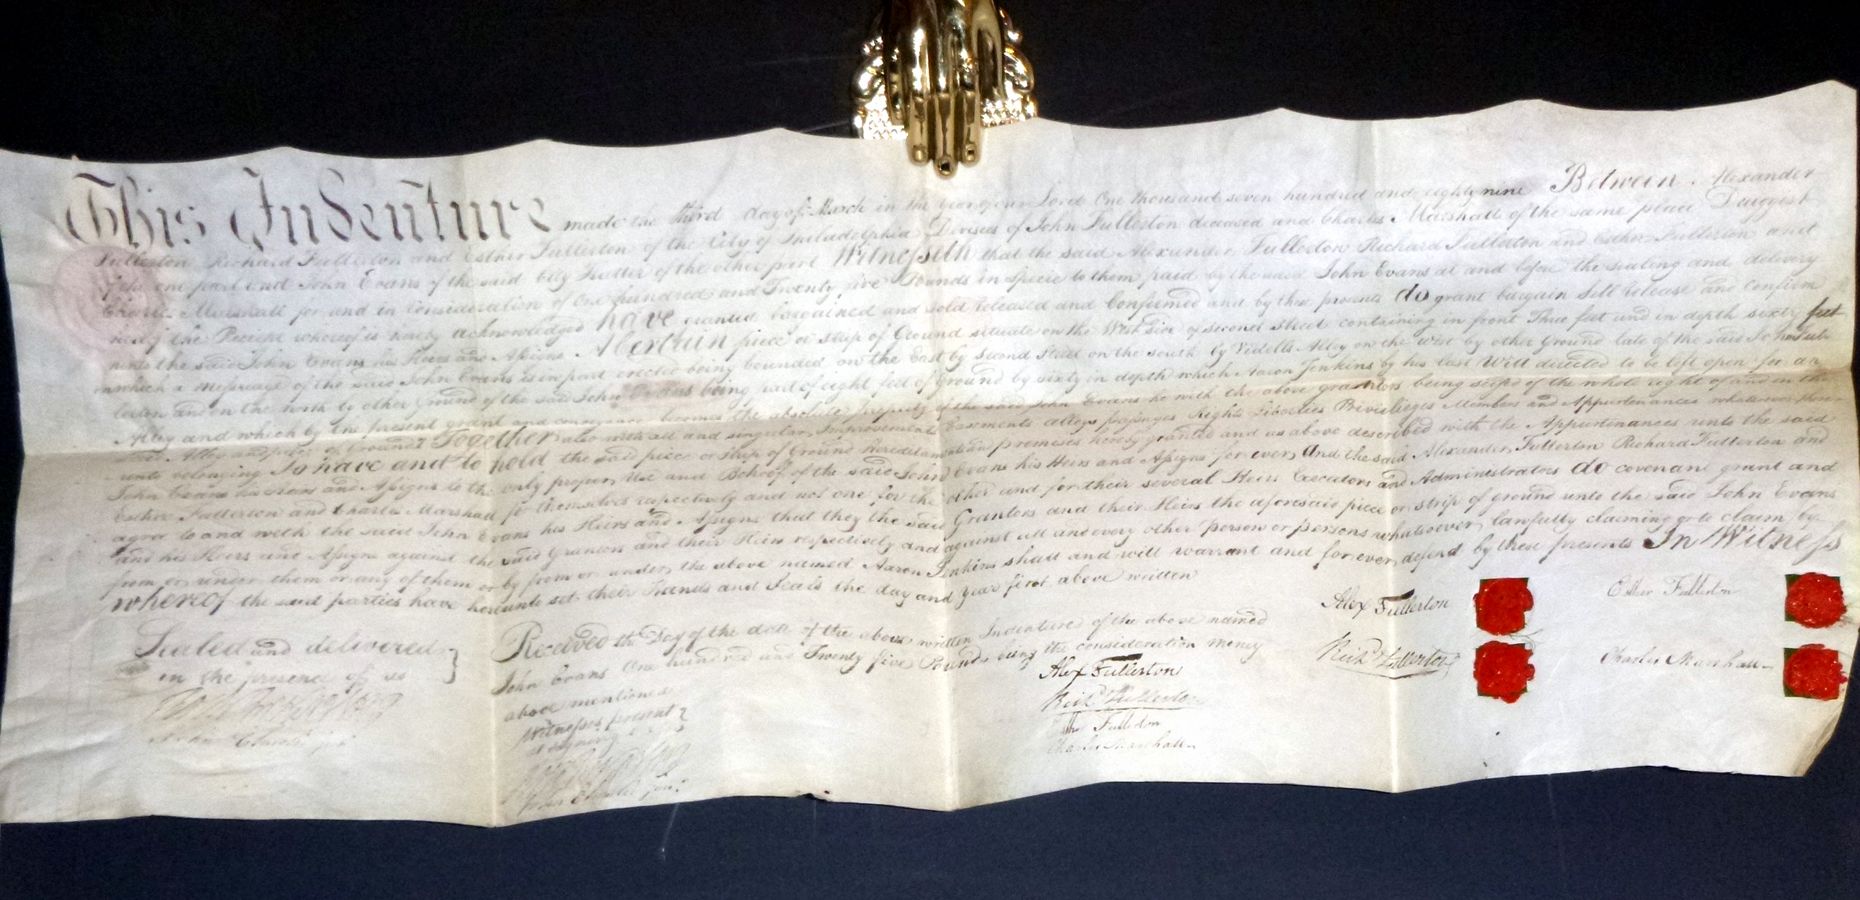 This Indenture made the third day of March in the year of our Lord One thousand seven hundred and eighty nine Between Alexander
Fullerton Richard Fullerton and Esther Fullerton of the City of Philadelphia Devisees of John Fullerton deceased and Charles Marshall of the same place Druggist
of the one part and John Evans of the said City Hatter of the other part Witnesseth that the said Alexander Fullerton Richard Fullerton and Esther Fullerton and
Charles Marshall for and in Consideration of One hundred and Twenty five Pounds in specie to them paid by the said John Evans at and before the sealing and delivery
hereof the Receipt whereof is hereby acknowledged have granted bargained and sold released and Confirmed and by these presents do grant bargain Sell Release and confirm
unto the said John Evans his Heirs and Assigns A Certain piece or strip of Ground situate on the West side of Second Street containing in front Three feet and in depth sixty feet
on which a Messuage of the said John Evans is in part erected being bounded on the East by Second Street on the south by Alley on the West by other Ground late of the said John Ful-
lerton and on the north by other Ground of the said John Evans being part of eight feet of Ground by sixty in depth which Aaron Jenkins by his last Will directed to be left open for an
Alley and which by the present grant and conveyance becomes the absolute property of the said John Evans he with the above grantors being seized of the whole right of and in the
said Alley and piece of Ground Together also with all and singular Improvements Easements alleys passages Rights Liberties Priviledges Members and Appurtenances whatsoever there-
unto belonging To have and to hold the said piece or strip of Ground Hereditaments and premises hereby granted and as above described with the Appurtenances unto the said
John Evans his Heirs and Assigns to the only proper Use and Behoof of the said John Evans his Heirs and Assigns for ever And the said Alexander Fullerton Richard Fullerton and
Esther Fullerton and Charles Marshall for themselves respectively and not one for the other and for their several Heirs Executors and Administrators do covenant grant and
agree to and with the said John Evans his Heirs and Assigns that they the said Grantors and their Heirs the aforesaid piece or strip of ground unto the said John Evans
and his Heirs and Assigns against the said Grantors and their Heirs respectively and against all and every other person or persons whatsoever lawfully claiming or to claim by
from or under them or any of them or by from or under the above named Aaron Jenkins shall and will warrant and for ever defend by these presents In Witness
whereof the said parties have hereunto set their Hands and Seals the day and year first above written
Alex Fullerton
Esther Fullerton
Richd Fullerton
Charles Marshall
Sealed and delivered
in the presence of us
Received the Day of the date of the above written Indenture of the above named
John Evans One hundred and Twenty five Pounds being the consideration money
above mentioned
Witnesses present
at signing
Alex Fullerton
Richd Fullerton
Esther Fullerton
Charles Marshall